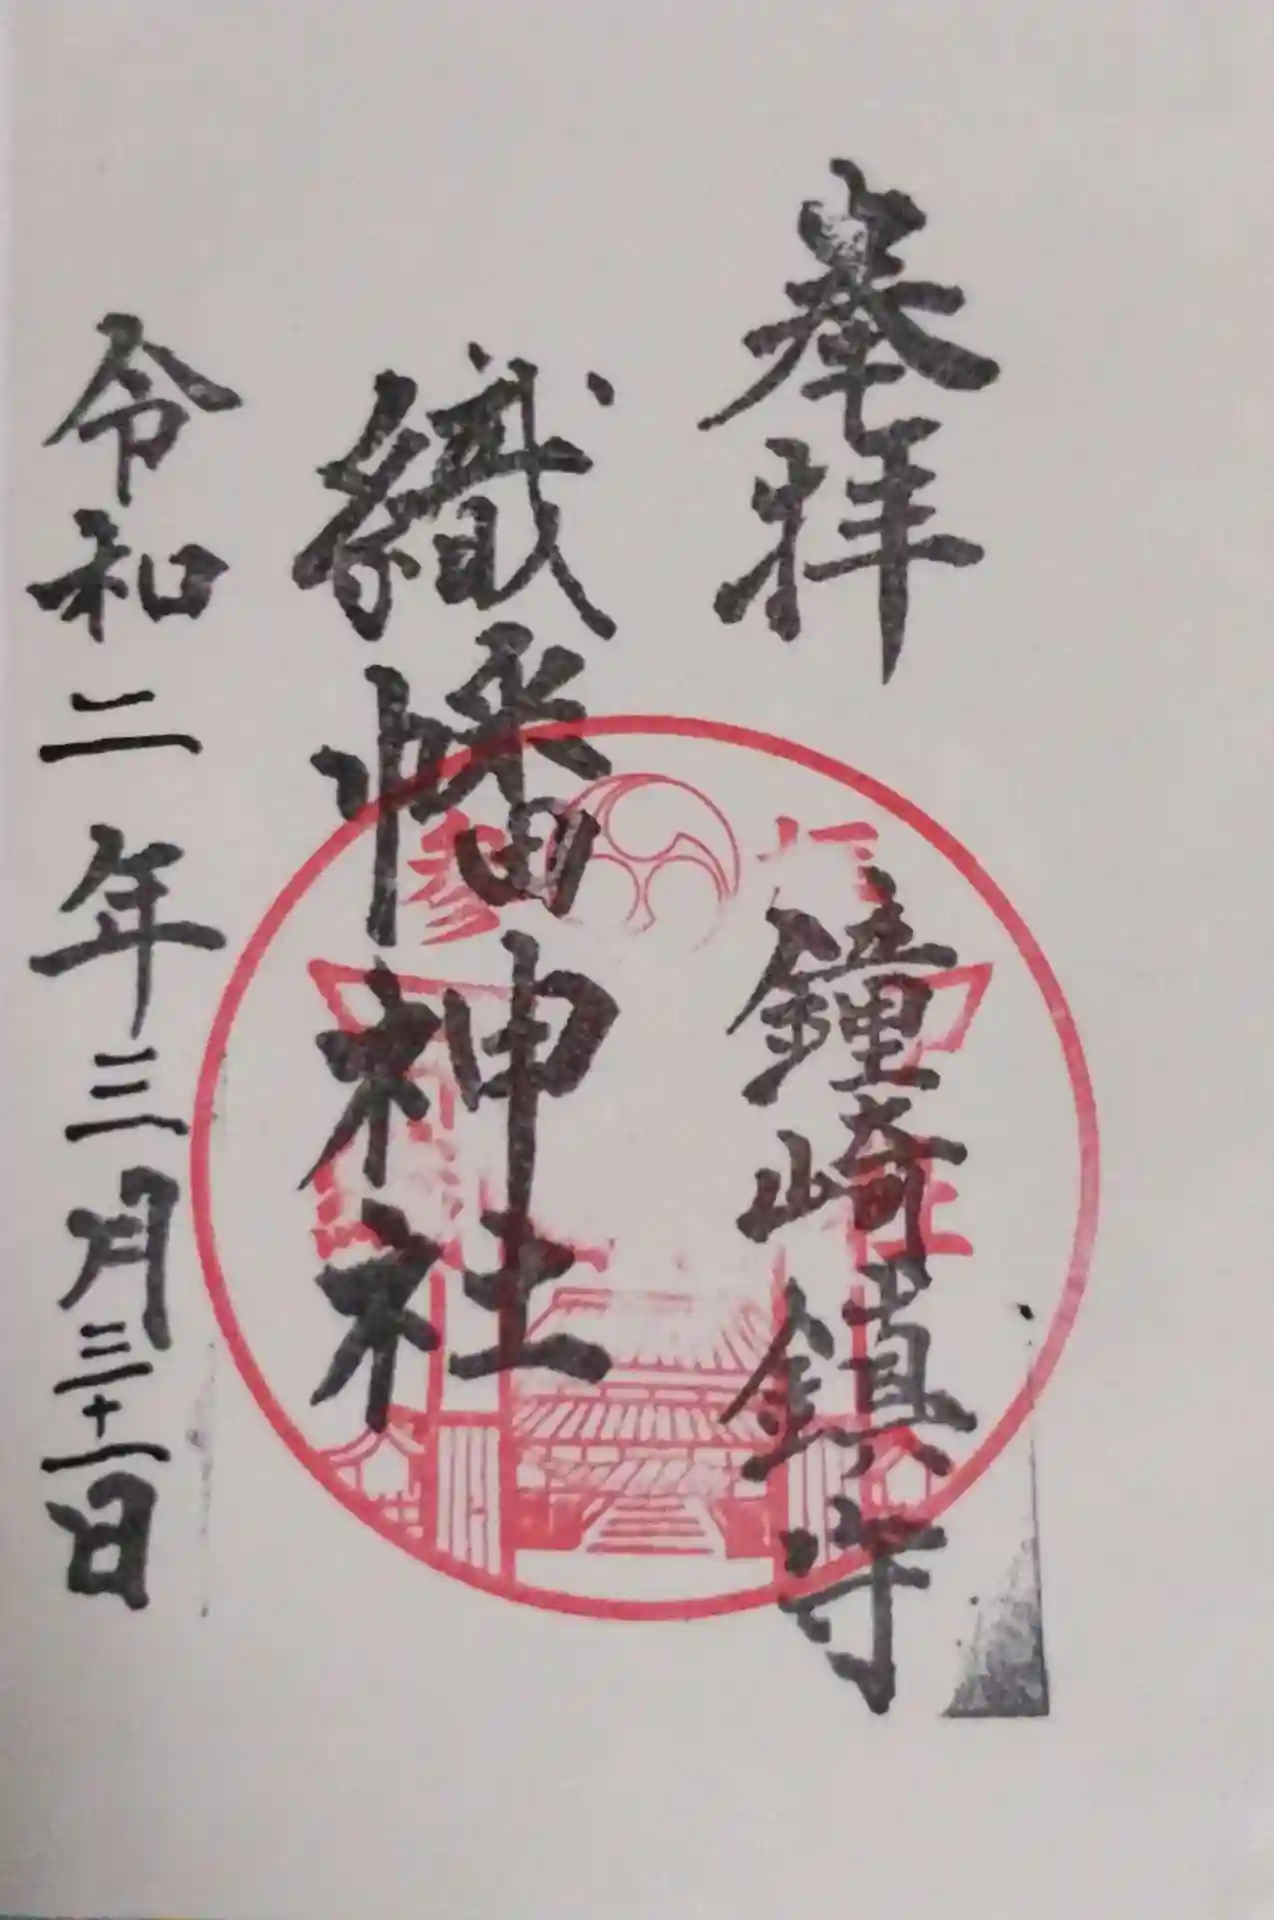 奉拝
鐘崎鎮守
織幡神社
令和二年三月三十一日
参拝